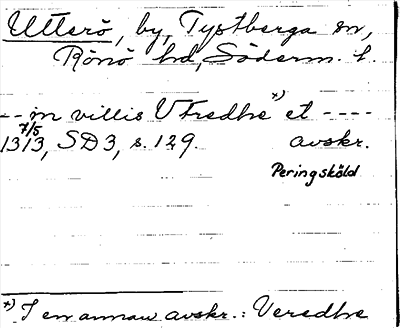 Utterö, by, Tystberga sn,
Rönö hd, Söderm. l.
-- in villis Utredhe *) et ----
7/5
1313, SD 3, s. 129. avskr.
Peringsköld
*) I en annan avskr.: Veredhe